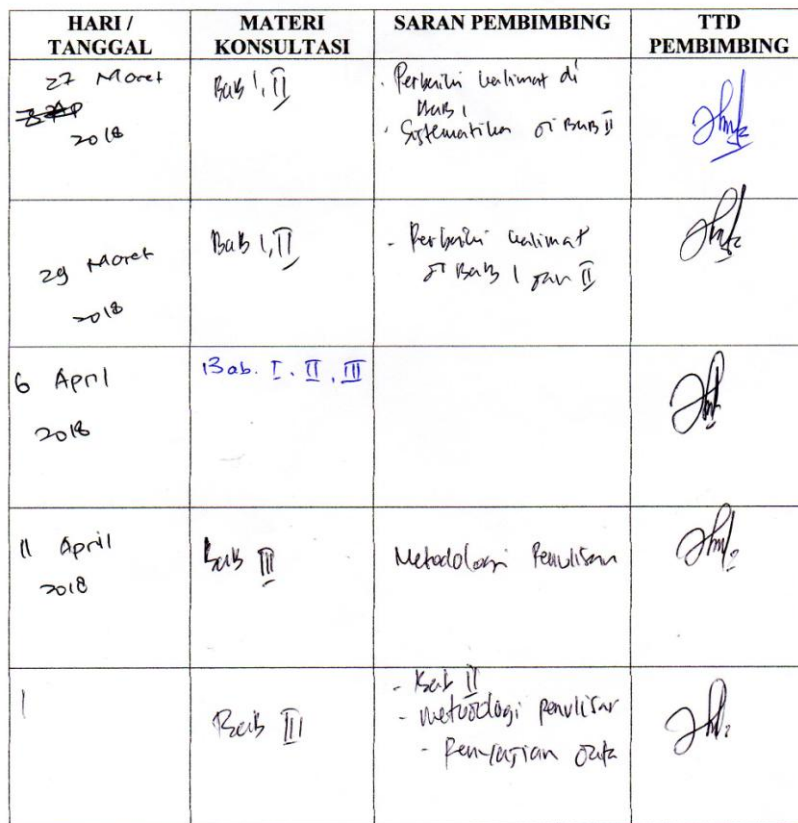 HARI / TANGGAL
MATERI KONSULTASI
SARAN PEMBIMBING
TTD PEMBIMBING
27 Maret
2018
Bab I, II
- Perbaiki kalimat di
Bab I
- Sistematika di Bab II
29 Maret
2018
Bab I, II
- Perbaiki kalimat
di Bab I dan II
6 April
2018
Bab. I. II. III
11 April
2018
Bab III
Metodologi Penulisan
Bab III
- Bab II
- Metodologi penulisan
- Penyajian data